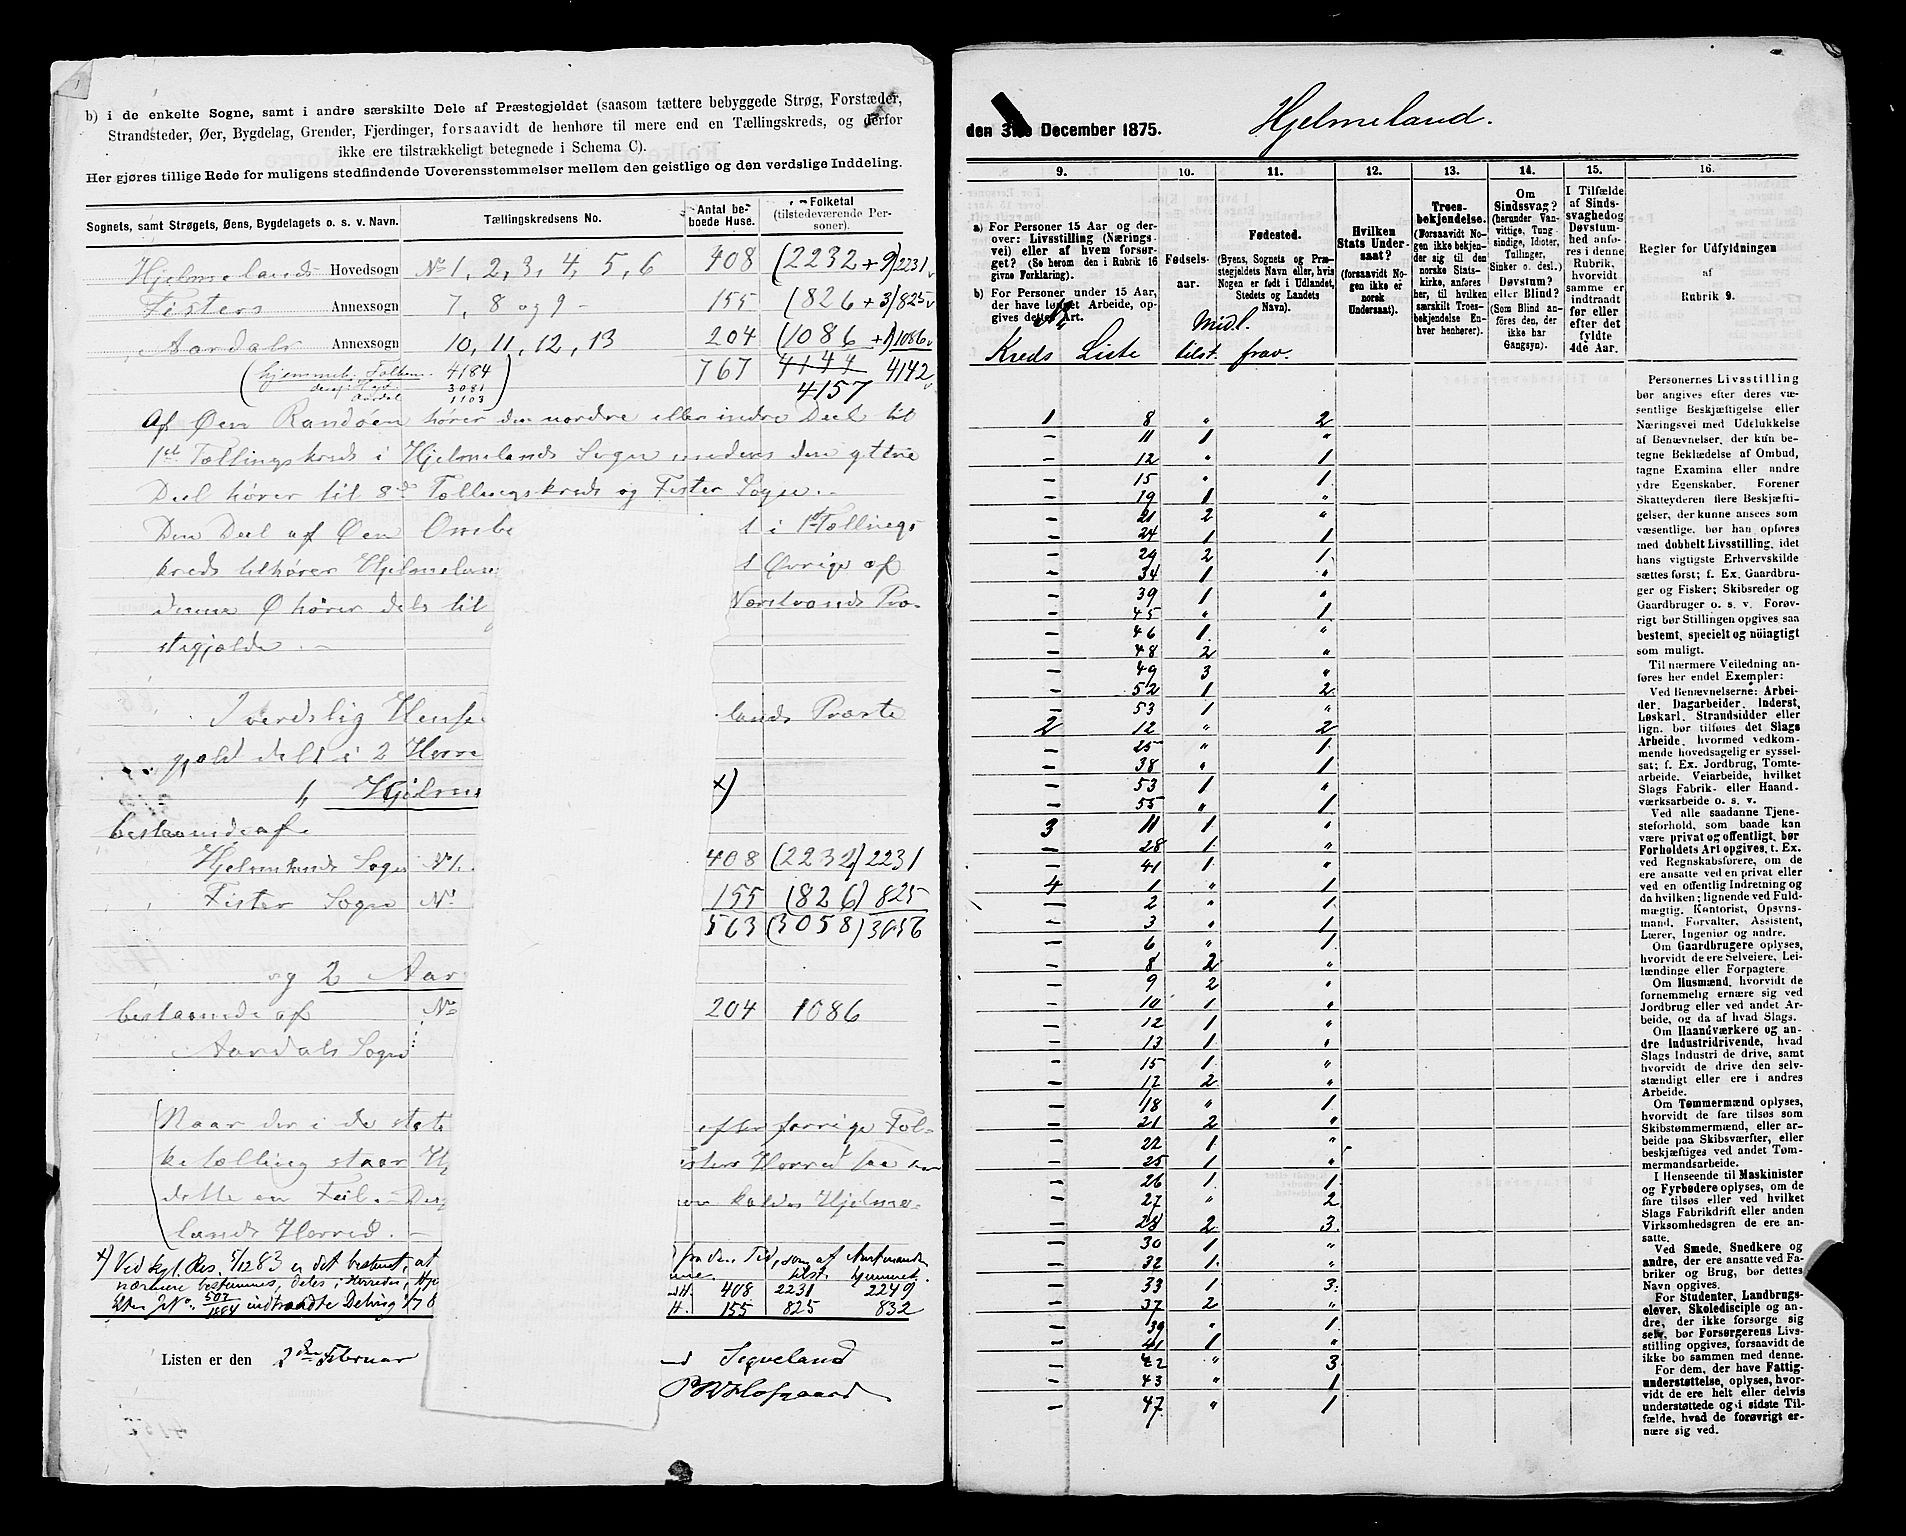 b) i de enkelte Sogne, samt i andre særskilte Dele af Præstegjeldet (saasom tættere bebyggede Strøg, Forstæder,
Strandsteder, Øer, Bygdelag, Grender, Fjerdinger, forsaavidt de henhøre til mere end en Tællingskreds, og derfor
ikke ere tilstrækkeligt betegnede i Schema C).
Her gjøres tillige Rede for muligens stedfindende Uoverensstemmelser mellem den geistlige og den verdslige Inddeling.
Sognets, samt Strøgets, Øens, Bygdelagets o. s. v. Navn. Tællingskredsens No. Antal beboede Huse. Folketal (tilstedeværende Personer).
Hjelmelands Hovedsogn No 1, 2, 3, 4, 5, 6 408 (2232 + 9) 2231
Fisters Annexsogn 7, 8 og 9 - 155 (826 + 3) 825
Aardals Annexsogn 10, 11, 12, 13 204 (1086 + 1) 1086
(hjemmeh. Folkem. 4184 767 4144 4142
3081 4157
Aardal 1103)
Af Øen Randøen hører den nordre eller indre Deel til
1ste Tællingskreds i Hjelmelands Sogn medens den yttre
Deel hører til 8de Tællingskreds og Fister Sogn.
Den Deel af Øen Ombo i 1ste Tællings
kreds tilhører Hjelmeland Øvrige af
denne Ø hører dels til Nærstrands Præ-
stegjelde. -
I verdslig Hense lands Præste
gjeld delt i 2 Herre
1, Hjelme x)
bestaaende af
Hjelmelands Sogn No 1. 408 (2232) 2231
Fister Sogn No 155 (826) 825
563 (3058) 3056
og 2 Aar
bestaaende af No 204 1086
Aardals Sogn
(Naar der i de stati efter forrige Fol-
ketælling staar Hj Fisters Herred saa er
dette en Feil. - Det kaldes Hjelme-
lands Herred. -
x) Ved kgl. Res. 5/12 83 er det bestemt, at fra den Tid, som af Amtmanden
nærmere bestemmes, deles Herredet, Hje tilst. hjemmeh.
507/1884 indtraadte Deling 1/7 8 H. 408 2231 2249
H. 155 825 832
Listen er den 2den Februar Segveland
P W Hofgaard
den 31te December 1875. Hjelmeland.
9. 10. 11. 12. 13. 14. 15. 16.
a) For Personer 15 Aar og derover: Livsstilling (Næringsvei) eller af hvem forsørget? (Se herom den i Rubrik 16 givne Forklaring).
b) For Personer under 15 Aar, der have lønnet Arbeide, opgives dettes Art.
Fødselsaar.
Fødested. (Byens, Sognets og Præstegjeldets Navn eller, hvis Nogen er født i Udlandet, Stedets og Landets Navn).
Hvilken Stats Undersaat? (forsaavidt Nogen ikke er norsk Undersaat).
Troesbekjendelse. (Forsaavidt Nogen ikke bekjender sig til den norske Statskirke, anføres her, til hvilken særskilt Troesbekjendelse Enhver henhører).
Om Sindssvag? (herunder Vanvittige, Tungsindige, Idioter, Tullinger, Sinker o. desl.) Døvstum? eller Blind? (Som Blind anføres den, der ikke har Gangsyn).
I Tilfælde af Sindssvaghed og Døvstumhed anføres i denne Rubrik, hvorvidt samme er indtraadt før eller efter det fyldte 4de Aar.
Regler for Udfyldningen
af
Rubrik 9.
No Midl.
Kreds Liste tilst. frav.
1 8 " 2
- 11 1 "
- 12 " 1
- 15 " 1
- 19 1 "
- 21 2 "
- 24 1 1
- 29 2 1
- 34 1 "
- 39 1 "
- 45 " 1
- 46 1 "
- 48 2 "
- 49 3 "
- 52 1 2
- 53 1 "
2 12 " 2
- 25 " 1
- 38 " 1
- 53 1 "
- 55 " 1
3 11 1 "
- 28 1 "
- 41 1 "
4 1 " 1
- 2 " 1
- 3 " 1
- 6 " 1
- 8 2 "
- 9 2 "
- 10 1 "
- 12 1 "
- 13 1 "
- 15 1 "
- 17 2 "
- 18 " 1
- 21 2 "
- 22 1 "
- 25 1 "
- 26 1 1
- 27 " 2
- 28 2 3
- 30 1 "
- 32 1 "
- 33 1 3
- 37 2 "
- 39 " 1
- 41 1 "
- 42 " 3
- 43 " 1
- 47 " 1
Personernes Livsstilling
bør angives efter deres væ-
sentlige Beskjæftigelse eller
Næringsvei med Udelukkelse
af Benævnelser, der kun be-
tegne Beklædelse af Ombud,
tagne Examina eller andre
ydre Egenskaber. Forener
Skatteyderen flere Beskjæfti-
gelser, der kunne ansees som
væsentlige, bør han opføres
med dobbelt Livsstilling, idet
hans vigtigste Erhvervskilde
sættes først; f. Ex. Gaardbru-
ger og Fisker; Skibsreder og
Gaardbruger o. s. v. Forøv-
rigt bør Stillingen opgives saa
bestemt, specielt og nöiagtigt
som muligt.
Til nærmere Veiledning an-
føres her endel Exempler:
Ved Benævnelserne: Arbei-
der, Dagarbeider, Inderst,
Løskarl, Strandsidder eller
lign. bør tilføies det Slags
Arbeide, hvormed vedkom-
mende hovedsagelig er syssel-
sat; f. Ex. Jordbrug, Tomte-
arbeide, Veiarbeide, hvilket
Slags Fabrik- eller Haand-
værksarbeide o. s. v.
Ved alle saadanne Tjene-
steforhold, som baade kan
være privat og offentligt, bør
Forholdets Art opgives, t. Ex.
ved Regnskabsførere, om de
ere ansatte ved en privat eller
ved en offentlig Indretning og
da hvilken; lignende ved Fuld-
mægtig, Kontorist, Opsyns-
mand, Forvalter, Assistent,
Lærer, Ingeniør og andre.
Om Gaardbrugere oplyses,
hvorvidt de ere Selveiere, Lei-
lændinge eller Forpagtere.
Om Husmænd, hvorvidt de
fornemmelig ernære sig ved
Jordbrug eller ved andet Ar-
beide, og da af hvad Slags.
Om Haandværkere og an-
dre Industridrivende, hvad
Slags Industri de drive, samt
hvorvidt de drive den selv-
stændigt eller ere i andres
Arbeide.
Om Tømmermænd oplyses,
hvorvidt de fare tilsøs som
Skibstømmermænd, eller ar-
beide paa Skibsværfter, eller
beskjæftiges ved andet Tøm-
mermandsarbeide.
I Henseende til Maskinister
og Fyrbødere oplyses, om de
fare tilsøs eller ved hvilket
Slags Fabrikdrift eller anden
Virksomhedsgren de ere an-
satte.
Ved Smede, Snedkere og
andre, der ere ansatte ved Fa-
briker og Brug, bør dettes
Navn opgives.
For Studenter, Landbrugs-
elever, Skoledisciple og an-
dre, der ikke forsørge sig
selv, bør Forsørgerens Livs-
stilling opgives, forsaavidt de
ikke bo sammen med denne.
For dem, der have Fattig-
understøttelse, oplyses, hvor-
vidt de ere helt eller delvis
understøttede og i sidste Til-
fælde, hvad de forøvrigt er-
nære sig ved.